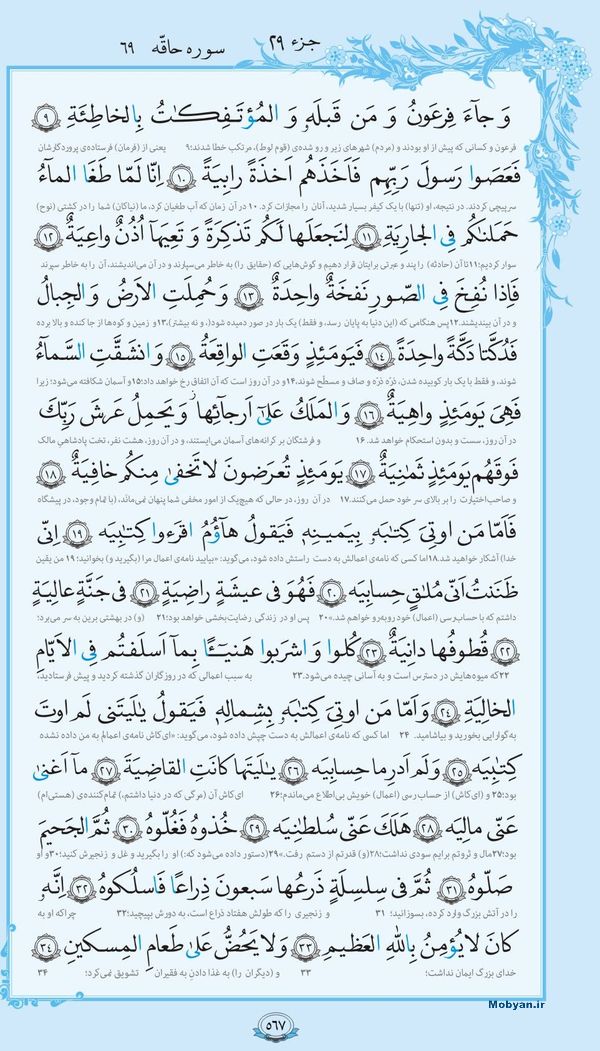 جزء ۲۹ سوره حاقّه ۶۹
وَ جاءَ فِرعَونُ وَ مَن قَبلَهُ وَ المُؤتَفِکٰتُ بِالخاطِئَةِ ۹
فرعون و کسانی که پیش از او بودند و (مردم) شهرهای زیر و رو شده‌ی (قوم لوط)، مرتکب خطا شدند؛۹ یعنی از (فرمان) فرستاده‌ی پروردگارشان
فَعَصَوا رَسولَ رَبِّهِم فَاَخَذَهُم اَخذَةً رابِیَةً ۱۰ اِنّا لَمّا طَغَا الماءُ
سرپیچی کردند. در نتیجه، او (تنها) با یک کیفر بسیار شدید، آنان را مجازات کرد. ۱۰ در آن زمان که آب طغیان کرد، ما (نیاکان) شما را در کشتی (نوح)
حَمَلناکُم فِی الجارِیَةِ ۱۱ لِنَجعَلَها لَکُم تَذکِرَةً وَ تَعِیَها اُذُنٌ واعِیَةٌ ۱۲
سوار کردیم؛۱۱ تا آن (حادثه) را پند و عبرتی برایتان قرار دهیم و گوش‌هایی که (حقایق را) به خاطر می‌سپارند و در آن می‌اندیشند، آن را به خاطر سپرند
فَاِذا نُفِخَ فِی الصّورِ نَفخَةٌ واحِدَةٌ ۱۳ وَ حُمِلَتِ الاَرضُ وَ الجِبالُ
و در آن بیندیشند.۱۲ پس هنگامی که (این دنیا به پایان رسد، و فقط) یک بار در صور دمیده شود(، و نه بیشتر)،۱۳ و زمین و کوه‌ها از جا کنده و بالا برده
فَدُکَّتا دَکَّةً واحِدَةً ۱۴ فَیَومَئِذٍ وَقَعَتِ الواقِعَةُ ۱۵ وَ انشَقَّتِ السَّماءُ
شوند، و فقط با یک بار کوبیده شدن، ذَرّه ذَرّه و صاف و مسطّح شوند،۱۴ و در آن روز است که آن اتفاق رخ خواهد داد؛۱۵ و آسمان شکافته می‌شود؛ زیرا
فَهِیَ یَومَئِذٍ واهِیَةٌ ۱۶ وَ المَلَکُ عَلیٰ اَرجائِها وَ یَحمِلُ عَرشَ رَبِّکَ
در آن روز، سست و بدون استحکام خواهد شد. ۱۶ و فرشتگان بر کرانه‌های آسمان می‌ایستند، و در آن روز، هشت نفر، تخت پادشاهیِ مالک
فَوقَهُم یَومَئِذٍ ثَمٰنِیَةٌ ۱۷ یَومَئِذٍ تُعرَضونَ لا تَخفیٰ مِنکُم خافِیَةٌ ۱۸
و صاحب‌اختیارت را بر بالای سر خود حمل می‌کنند.۱۷ در آن روز، در حالی که هیچ‌یک از امور مخفی شما پنهان نمی‌ماند، (با تمام وجود، در پیشگاه
فَاَمّا مَن اوتِیَ کِتٰبَهُ بِیَمینِهِ فَیَقولُ هاؤُمُ اقرَءوا کِتٰبِیَه ۱۹ اِنّی
خدا) آشکار خواهید شد.۱۸ اما کسی که نامه‌ی اعمالش به دست راستش داده شود، می‌گوید: «بیایید نامه‌ی اعمال مرا (بگیرید و) بخوانید؛ ۱۹ من یقین
ظَنَنتُ اَنّی مُلاقٍ حِسابِیَه ۲۰ فَهُوَ فی عیشَةٍ راضِیَةٍ ۲۱ فی جَنَّةٍ عالِیَةٍ
داشتم که با حساب‌رسی (اعمال) خود روبه‌رو خواهم شد.»۲۰ پس او در زندگی رضایت‌بخشی خواهد بود؛۲۱ (و) در بهشتی برین به سر می‌برد؛
۲۲ قُطوفُها دانِیَةٌ ۲۳ کُلوا وَ اشرَبوا هَنیئًا بِما اَسلَفتُم فِی الاَیّامِ
۲۲ که میوه‌هایش در دسترس است و به آسانی چیده می‌شود.۲۳ به سبب اعمالی که در روزگاران گذشته کردید و پیش فرستادید،
الخالِیَةِ ۲۴ وَ اَمّا مَن اوتِیَ کِتٰبَهُ بِشِمالِهِ فَیَقولُ یٰلَیتَنی لَم اوتَ
به‌گوارایی بخورید و بیاشامید. ۲۴ اما کسی که نامه‌ی اعمالش به دست چپش داده شود، می‌گوید: «ای‌کاش نامه‌ی اعمالم به من داده نشده
کِتٰبِیَه ۲۵ وَ لَم اَدرِ ما حِسابِیَه ۲۶ یٰلَیتَها کانَتِ القاضِیَةَ ۲۷ ما اَغنیٰ
بود؛۲۵ و (ای‌کاش) از حساب‌رسی (اعمال) خویش بی‌اطلاع می‌ماندم؛۲۶ ای‌کاش آن (مرگی که در دنیا داشتم،) تمام‌کننده‌ی (هستی‌ام)
عَنّی مالِیَه ۲۸ هَلَکَ عَنّی سُلطٰنِیَه ۲۹ خُذوهُ فَغُلّوهُ ۳۰ ثُمَّ الجَحیمَ
بود؛۲۷ مال و ثروتم برایم سودی نداشت؛۲۸ (و) قدرتم از دستم رفت.»۲۹ (دستور داده می‌شود که:) او را بگیرید و غل و زنجیرش کنید؛۳۰ و او
صَلّوهُ ۳۱ ثُمَّ فی سِلسِلَةٍ ذَرعُها سَبعونَ ذِراعًا فَاسلُکوهُ ۳۲ اِنَّهُ
را در آتش بزرگ وارد کرده، بسوزانید؛ ۳۱ و زنجیری را که طولش هفتاد ذراع است، به دورش بپیچید؛۳۲ چراکه او به
کانَ لا یُؤمِنُ بِاللّٰهِ العَظیمِ ۳۳ وَ لا یَحُضُّ عَلیٰ طَعامِ المِسکینِ ۳۴
خدای بزرگ ایمان نداشت؛ ۳۳ و (دیگران را) به غذا دادنِ به فقیران تشویق نمی‌کرد؛ ۳۴
Mobyan.ir
۵۶۷